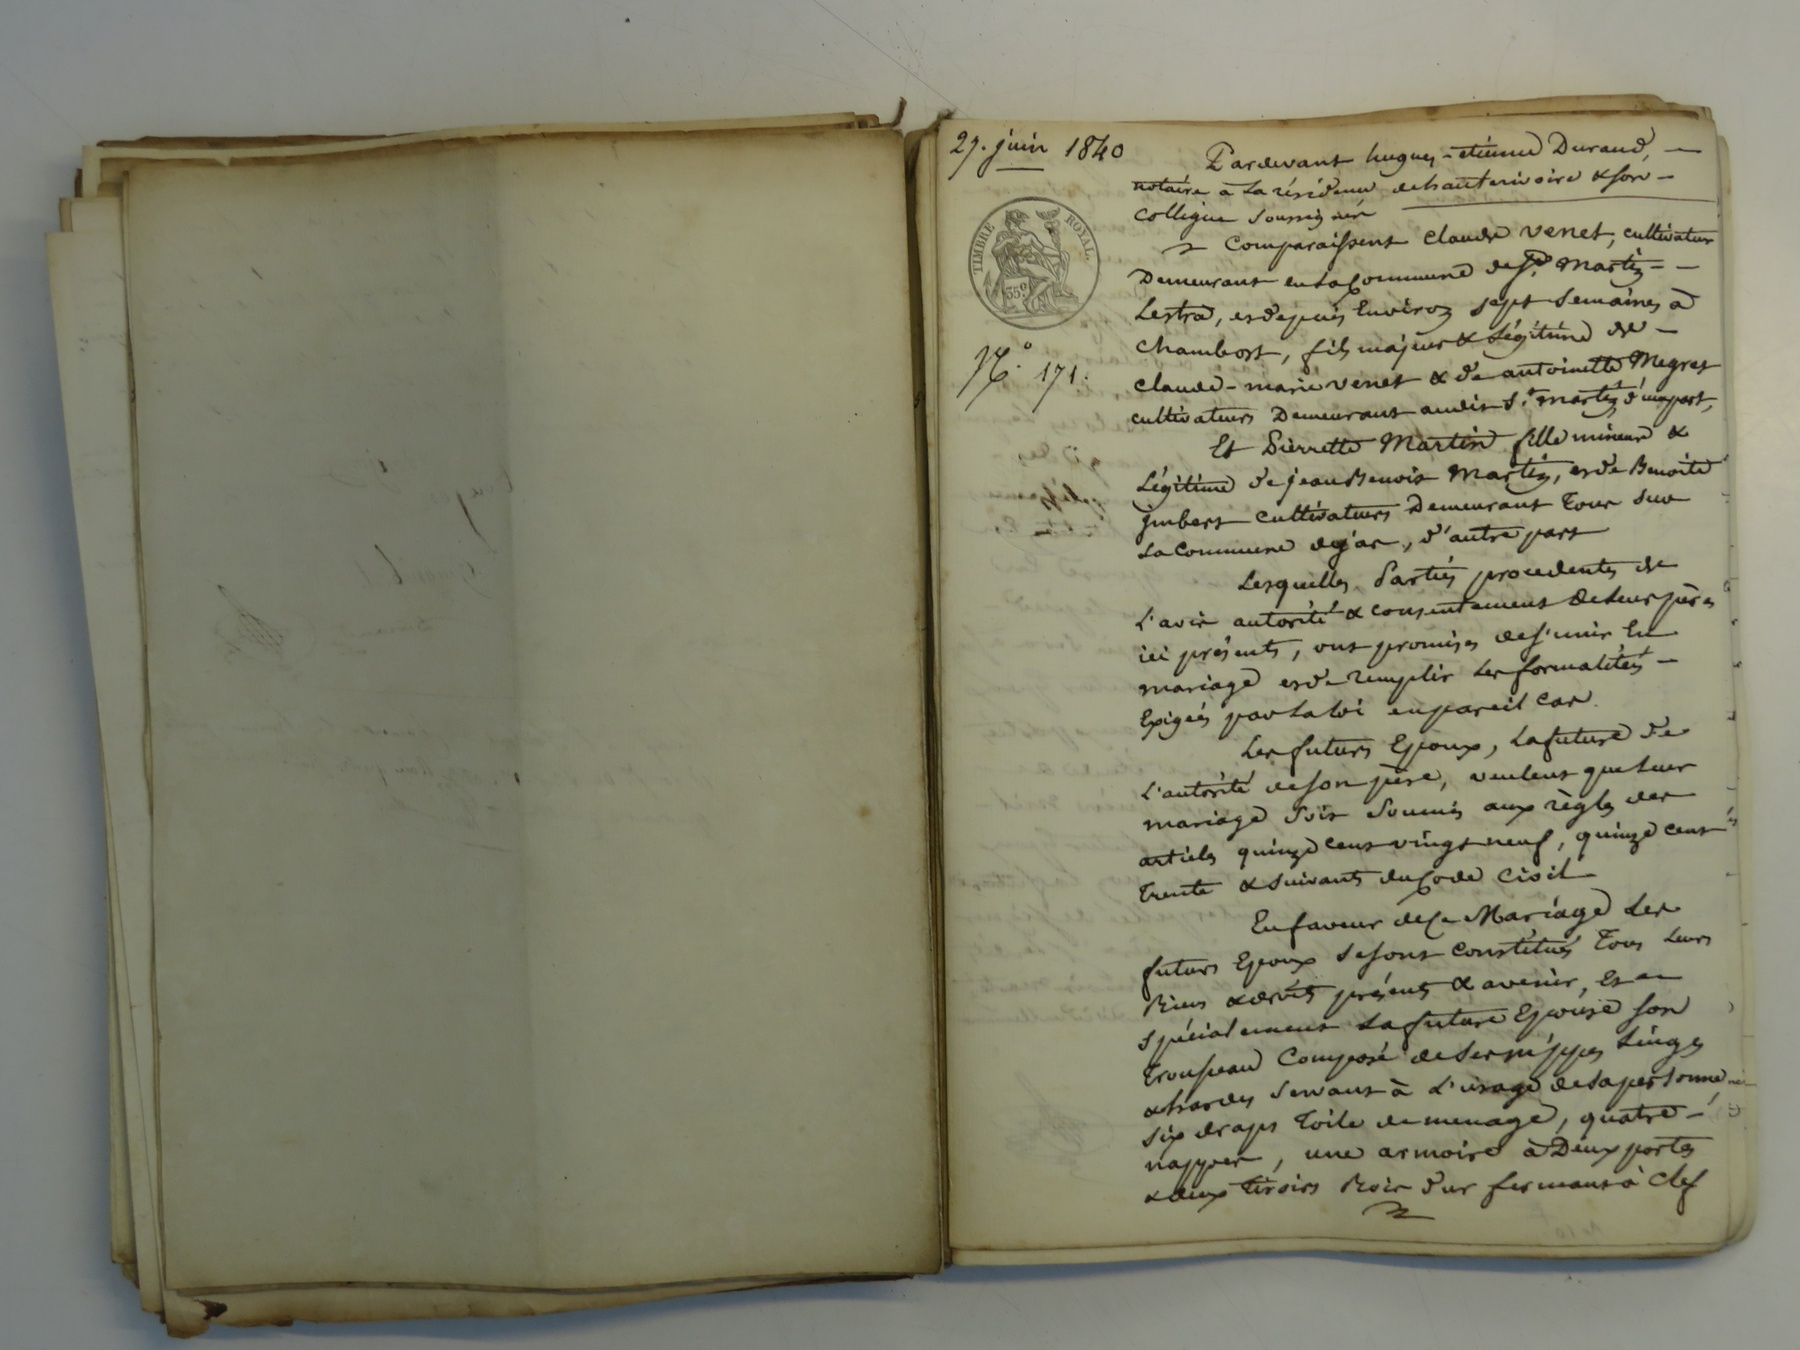 27. juin 1840
TIMBRE ROYAL.
35c
No. 171.
Pardevant hugues-etienne Durand, —
notaire à la résidence de hauterivoire & son —
collegue soussignés
Comparaissent claude venet, cultivateur
Demeurant en la Commune de St. Martin — —
Lestra, et depuis Environ sept semaines à
Chambost, fils majeur & Légitime de —
claude-marie venet & de antoinette Megret
cultivateurs Demeurant audit St. martin d'une part,
Et Pierrette Martin fille mineure &
Légitime de jean Benoit Martin, et de Benoite
jmbert cultivateurs Demeurant Tous sur
La Commune de jas, d'autre part
Lesquelles Parties procedentes de
L'avis autorité & consentement de leurs pères
ici présents, ont promises de s'unir En
mariage et de remplir Les formalités —
Exigées par La loi en pareil cas.
Les futurs Epoux, La future de
L'autorité de son père, veulent que leur
mariage soit soumis aux règles des
articles quinze cent vingt neuf, quinze cent
trente & suivants du Code Civil
En faveur de Ce Mariage Les
futurs Epoux se sont constitués Tous Leurs
Biens & droits présents & avenir, Et —
spécialement La future Epouse son
trousseau Composé de ses nippes Linges
& hardes servant à L'usage de sa personne
six draps toile de menage, quatre —
nappes, une armoire à Deux portes
& deux tiroirs Bois dur fermant à Clef